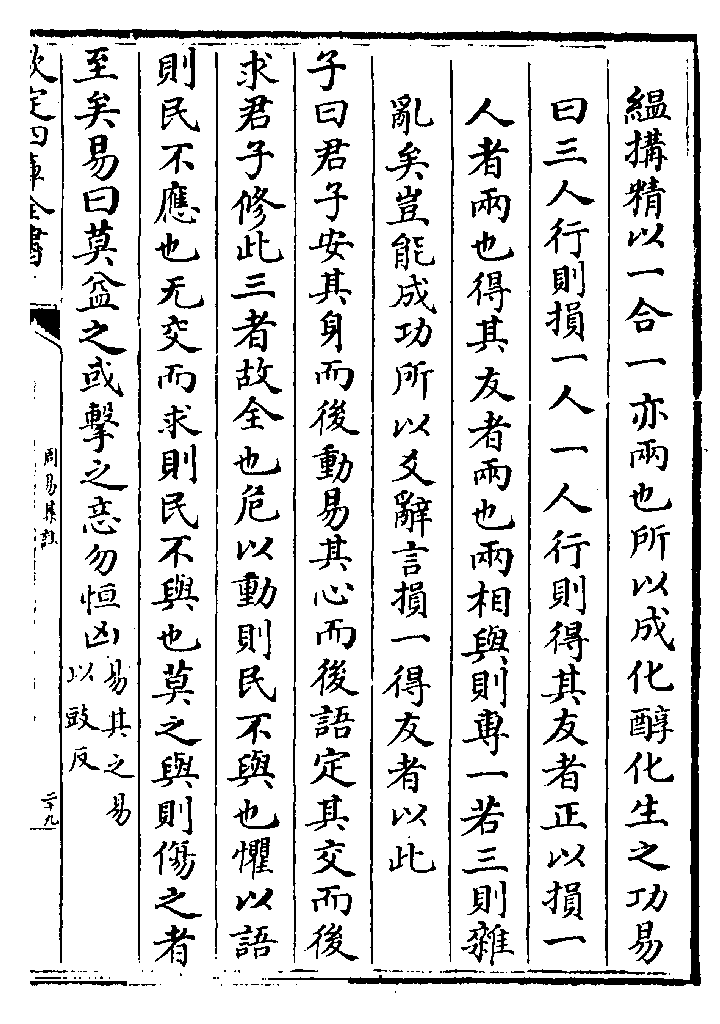 緼搆精以一合一亦兩也所以成化醇化生之功易
曰三人行則損一人一人行則得其友者正以損一
人者兩也得其友者兩也兩相與則專一若三則雜
亂矣豈能成功所以爻辭言損一得友者以此
子曰君子安其身而後動易其心而後語定其交而後
求君子修此三者故全也危以動則民不與也懼以語
則民不應也无交而求則民不與也莫之與則傷之者
至矣易曰莫益之或擊之立心勿恒凶易其之易
以豉反
欽定四庫全書
周易集註
二十九